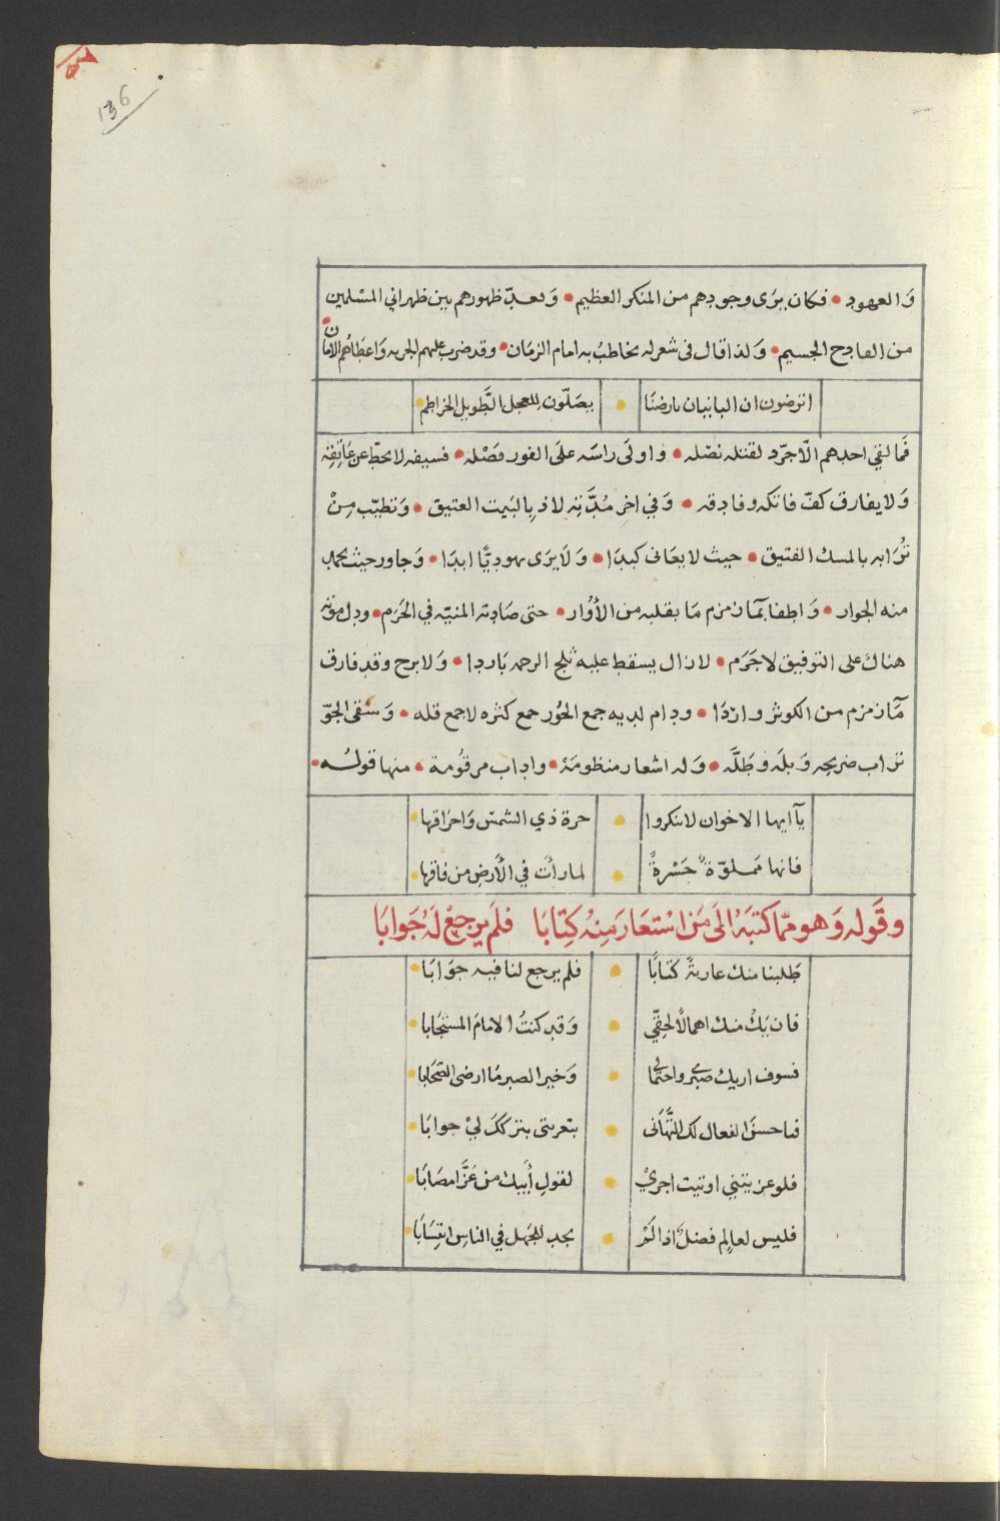 136
وَالعهود • فكان يرَى وجودهم من المنكر العظيم • وَيعدّ ظهورهم بين ظهراني المسْلمين
من الفادح الجسيم • وَلذا قال فى شعر له يخاطبُ به امام الزمَان • وقد ضرب عليهم الجزيه وَاعطاهُم الامان
اترضون ان البانيان بارضنَا • يصَلّون للعجل الطَّويل الخراطم
فَما لقي احدهم الّا جرّد لقتله نصْله • واولَى راسَه علَى الفور فصْله • فسيفه لا يحطّ عن عَاتِقِه
وَلا يفارق كفّ فاتكه وفادقه • وَفي اخر مُدَّتِه لاذ بِالبَيت العتيق • وَتطيّب مِنْ
تُرَابه بالمسك الفتيق • حيث لا يعَانى كبدًا • وَلَا يرَى يهوديًّا ابدَا • وَجاور حيث يحمد
منه الجوار • وَاطفا بمَآ زمزم مَا بقلبه من الأُوار • حتى صَادته المنيّه في الحَرَم • ودل موته
هناك على التوفيق لا جَرَم • لا زال يسقط عليه ثلج الرحمه بَاردا • وَلا برح وقد فارق
مَآ زمزم من الكوثر واردَا • ودام لديه جمع الحُور جمع كثره لا جمع قله • وَسَقى الجوّ
تراب ضريحه وَبلَه وطَلَّه • وَله اشعار منظومَة • واداب مرقُومة • منها قولُه •
يَآ ايها الاخوان لا تنكروا • حرة ذي الشمسْ وَاحرَاقها
فانها مَملوّة حَسْرةً • لما رأت في الأَرضِ من فاقها
وقَوله وَهو ممّا كتبَهُ الَى مَن اسْتعَارَ مِنهُ كِتَابَا فلَم يرجعْ لَهُ جَوابَا
طَلبنا منك عاريةً كتابًا • فلم يرجع لنا فيه جوَابَا
فان يَكُ منك اهمالًا لحِقّي • وَقد كنتُ الامامَ المسْتجَابا
فسوف اريك صبرى واحتمالى • وَخير الصبر مَا ارضى الصّحَابا
فما حسنَ الفعال لك التّهَانى • بتعزيتى بتركك ليْ جوابَا
فلو عزيتني اوتيت اجريْ • لقولِ أَبيك من عَزَّا مصَابَا
فليس لعالِم فضلٌ اذا لَمْ • يجد للجهل في الناسِ انتِسَابَا